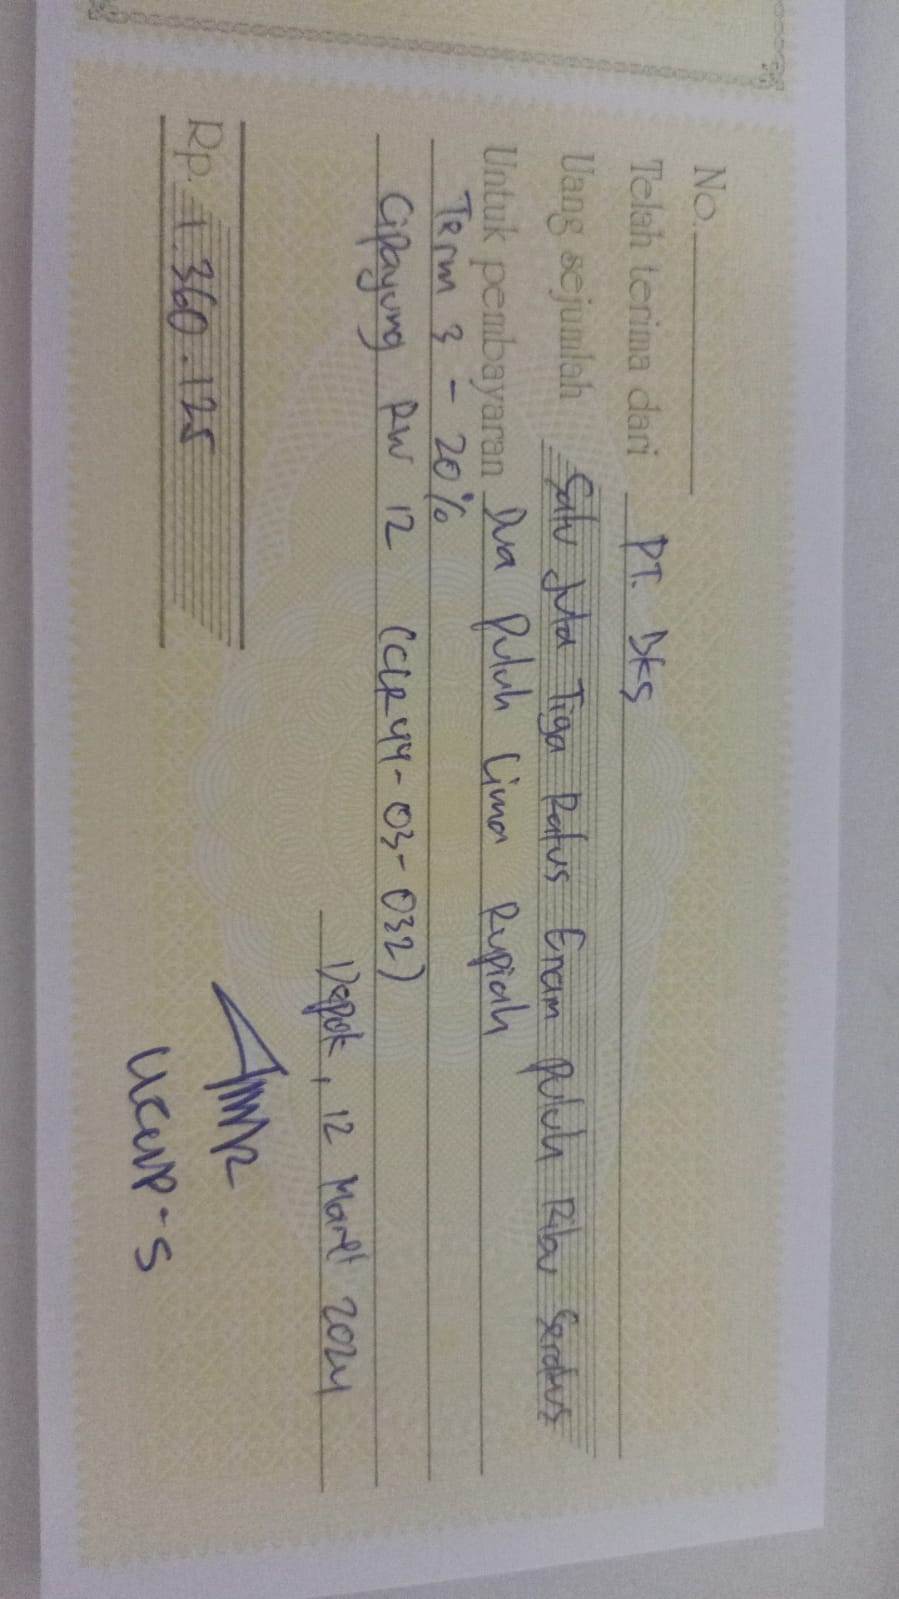 No.
Telah terima dari PT. DKS
Uang sejumlah Satu Juta Tiga Ratus Enam puluh Ribu Seratus
Untuk pembayaran Dua Puluh Lima Rupiah
Term 3 - 20%
Cipayung RW 12 (CLR44-03-032)
Depok, 12 Maret 2024
Rp. 1.360.125
UCUP-S